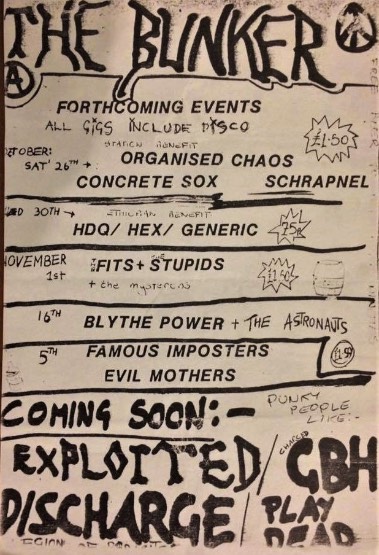 THE BUNKER
A
FORTHCOMING EVENTS
ALL GIGS INCLUDE DISCO
£1·50
STATION BENEFIT
OCTOBER:
SAT' 26TH → ORGANISED CHAOS
CONCRETE SOX SCHRAPNEL
WED 30TH → ETHIOPIAN BENEFIT
HDQ/ HEX/ GENERIC 75p
NOVEMBER
1st THE FITS + THE STUPIDS £1.50
+ the mysterons
16TH BLYTHE POWER + THE ASTRONAUTS
5TH FAMOUS IMPOSTERS £1.50
EVIL MOTHERS
COMING SOON:-
PUNKY
PEOPLE
LIKE:-
EXPLOITED/ CHAOTIC GBH
DISCHARGE/ PLAY
DEAD
LEGION OF